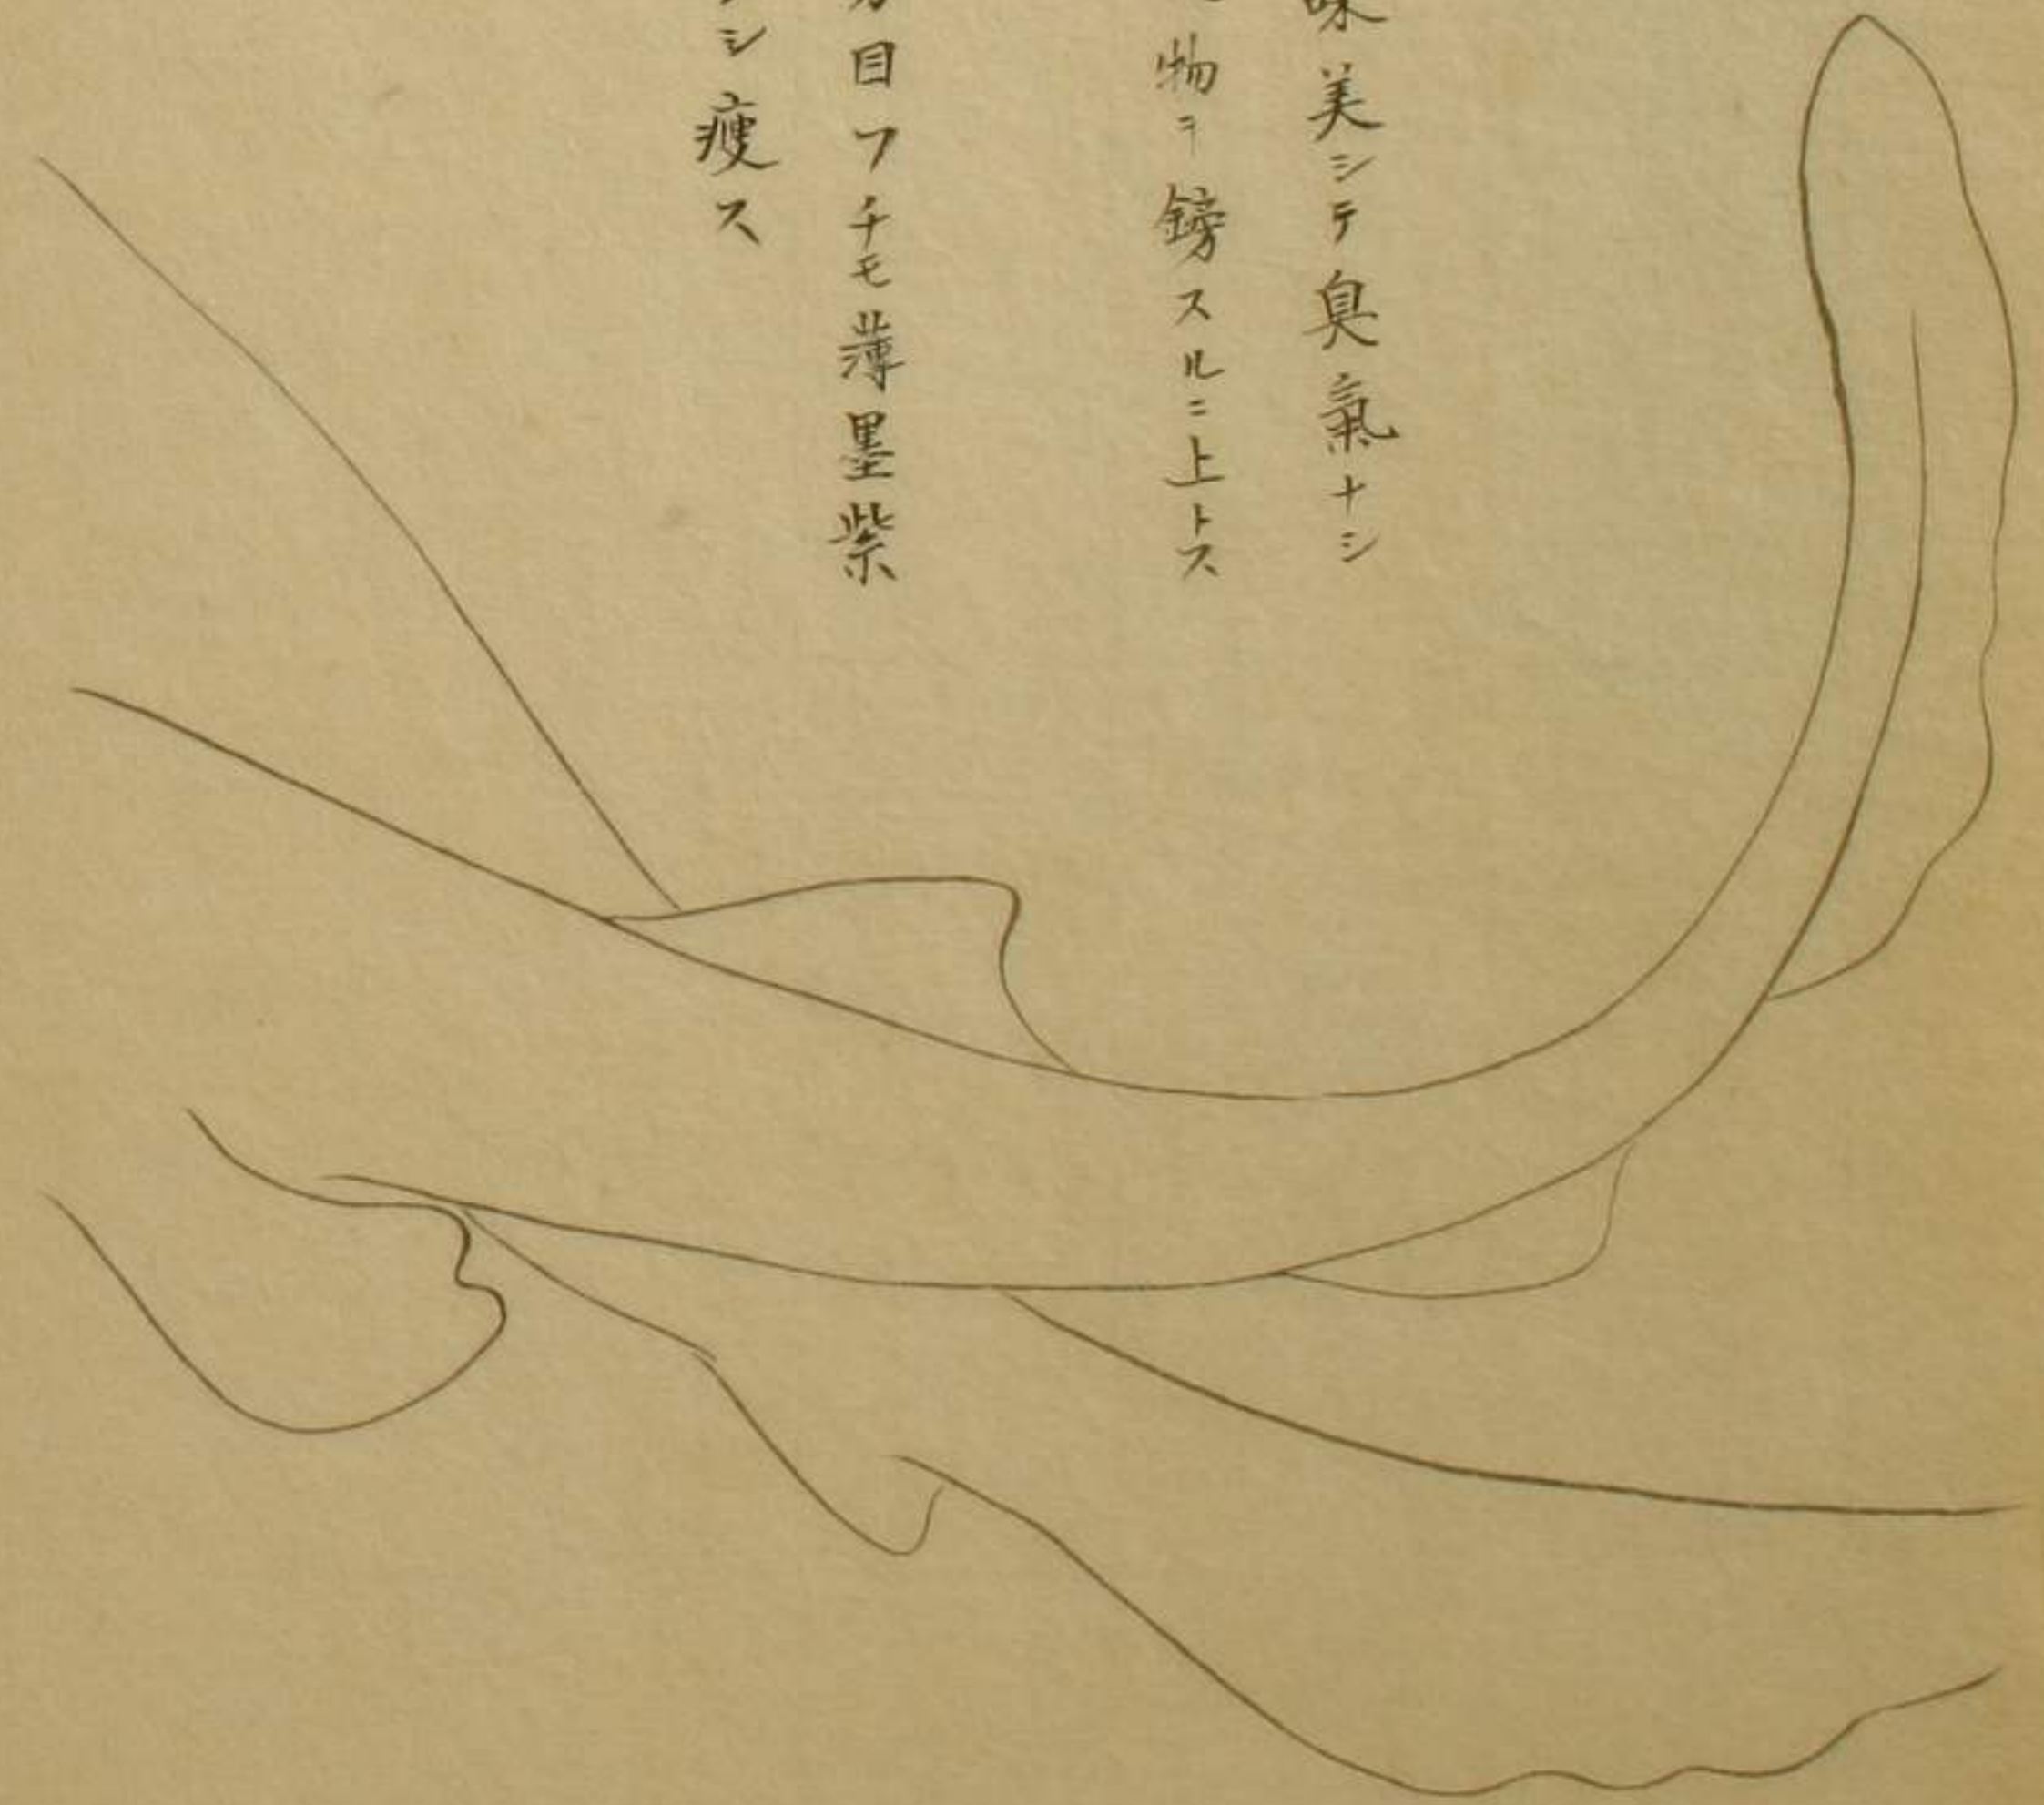 美シテ臭氣ナシ
物ヲ鎊スルニ上トス
目フチモ薄墨紫
シ瘦ス